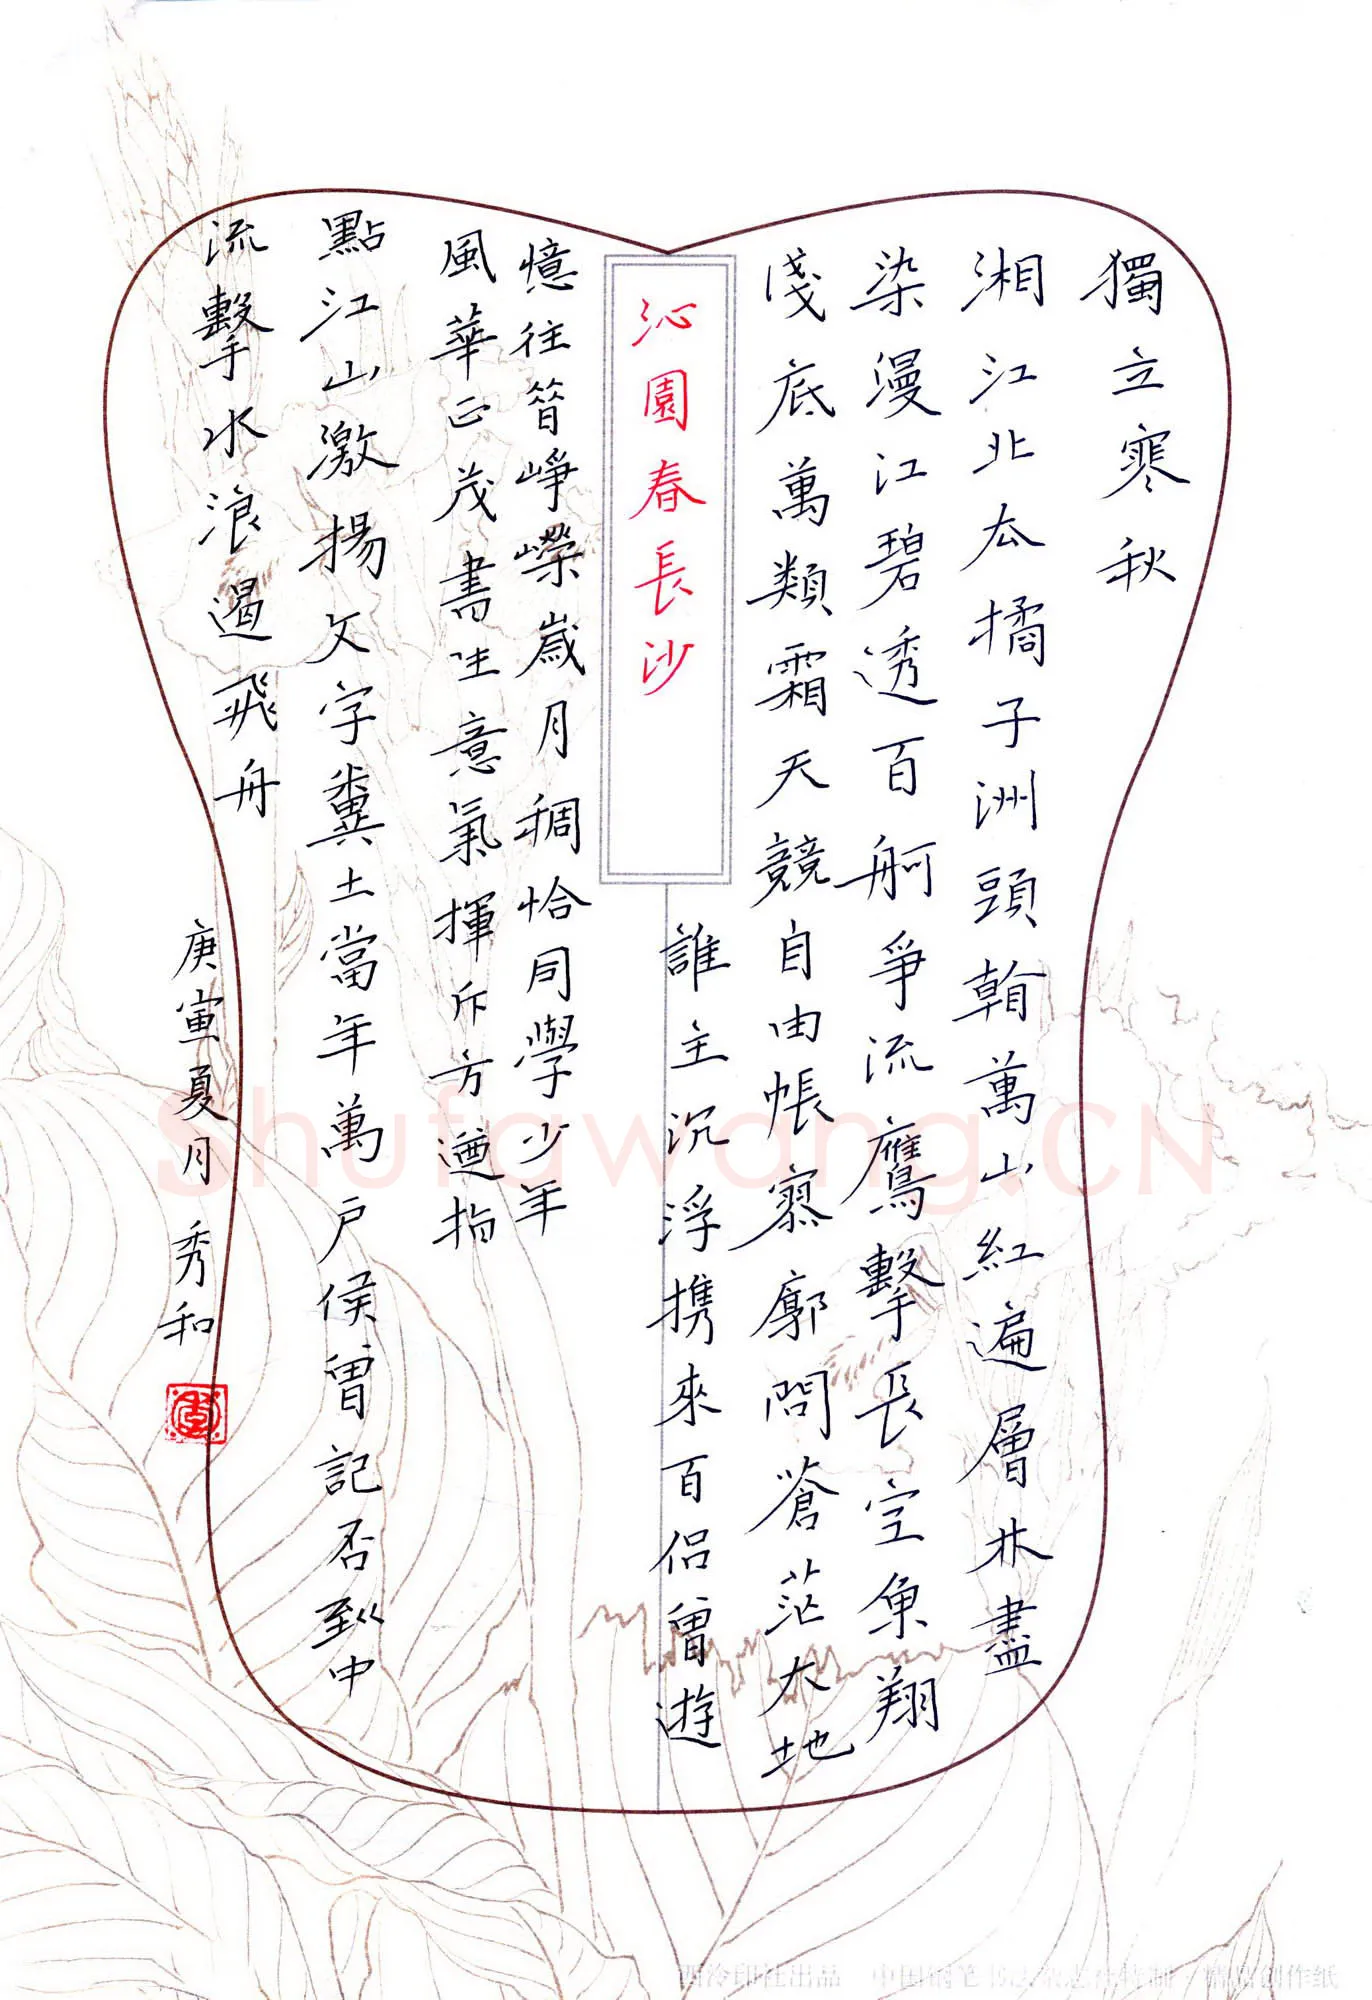 獨立寒秋
湘江北去橘子洲頭看萬山紅遍層林盡
染漫江碧透百舸爭流鷹擊長空魚翔
淺底萬類霜天競自由帳寥廓問蒼茫大地
誰主沉浮携來百侶曾遊
沁園春長沙
憶往昔崢嶸歲月稠恰同學少年
風華正茂書生意氣揮斥方遒指
點江山激揚文字糞土當年萬戶侯曾記否到中
流擊水浪遏飛舟
庚寅夏月秀和
Shufawang.CN
西泠印社出品 中国钢笔书法杂志社特制·精品创作纸